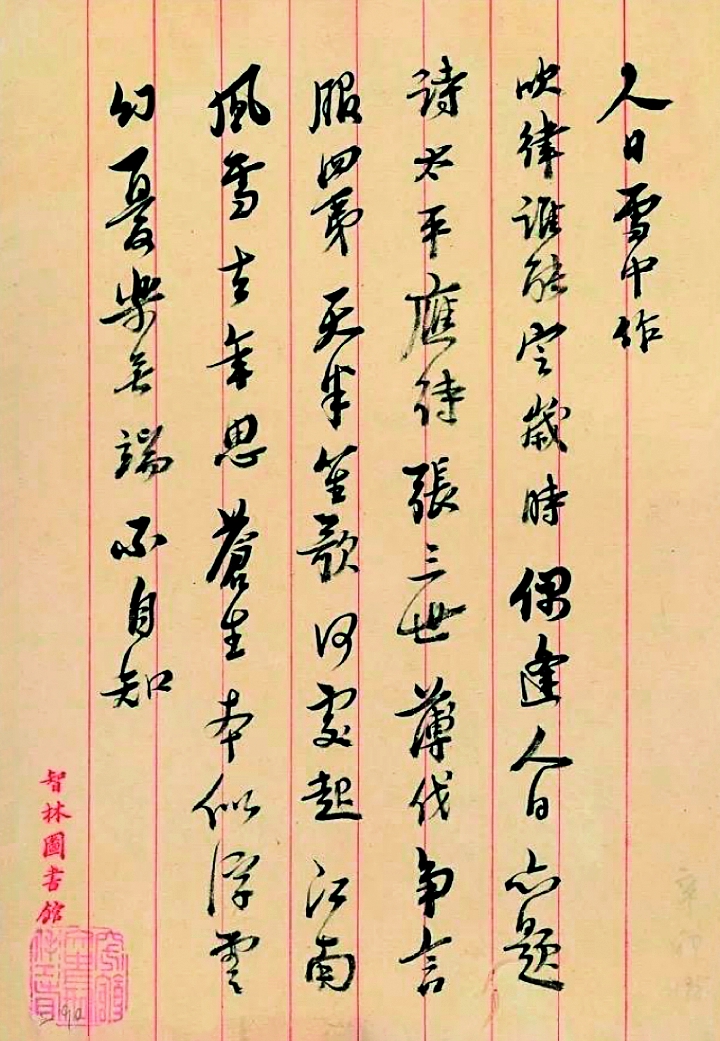 人日雪中作
吹律谁能定歲時偶逢人日亦題
诗太平應待張三世薄伐争言
服四夷天半笙歌何處起江南
風雪去年思蒼生本似浮雲
幻憂樂無端不自知
智林圖書館